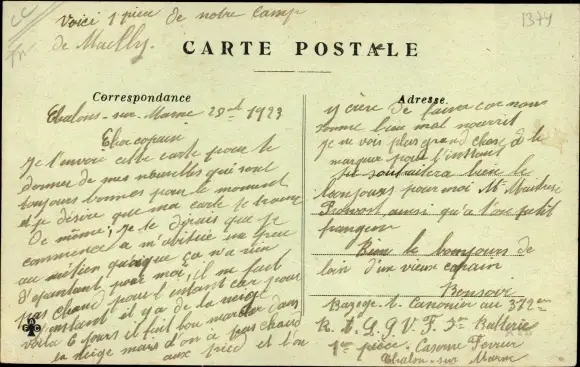 1374
Voici 1 pieu de notre camp
de Mailly.
CARTE POSTALE
Correspondance
Chalons-sur-Marne 1923
Cher copain
Je t'envoie cette carte pour te
donner de mes nouvelles qui sont
toujours bonnes pour le moment
et je désire que ma carte te trouve
de même, je te dirais que je
commence a m'abituer un peu
au métien quoique ça n'a rien
d'épantant pour moi, il ne fait
pas chaud pour l'instant car pour
l'instant il y a de la neige
voila 6 jours il fait bon marcher dans
la neige mais d'on a pas chaud
aux pied et bon
Adresse
y cière de car nous
somme bien mal nourrit
Je ne vois plus grand chose a te
marquer pour l'instant
tu souhaitera bien le
bonjours pour moi Mr
ainsi qu'a ton petit
frangeur
Rien le bonjours de
loin d'un vieux copain
Bonsoir
Canonier au 372em
R. A. L. G. V. F. Batterie
1re pièce. Caserne Ferrier
Chalon-sur Marne